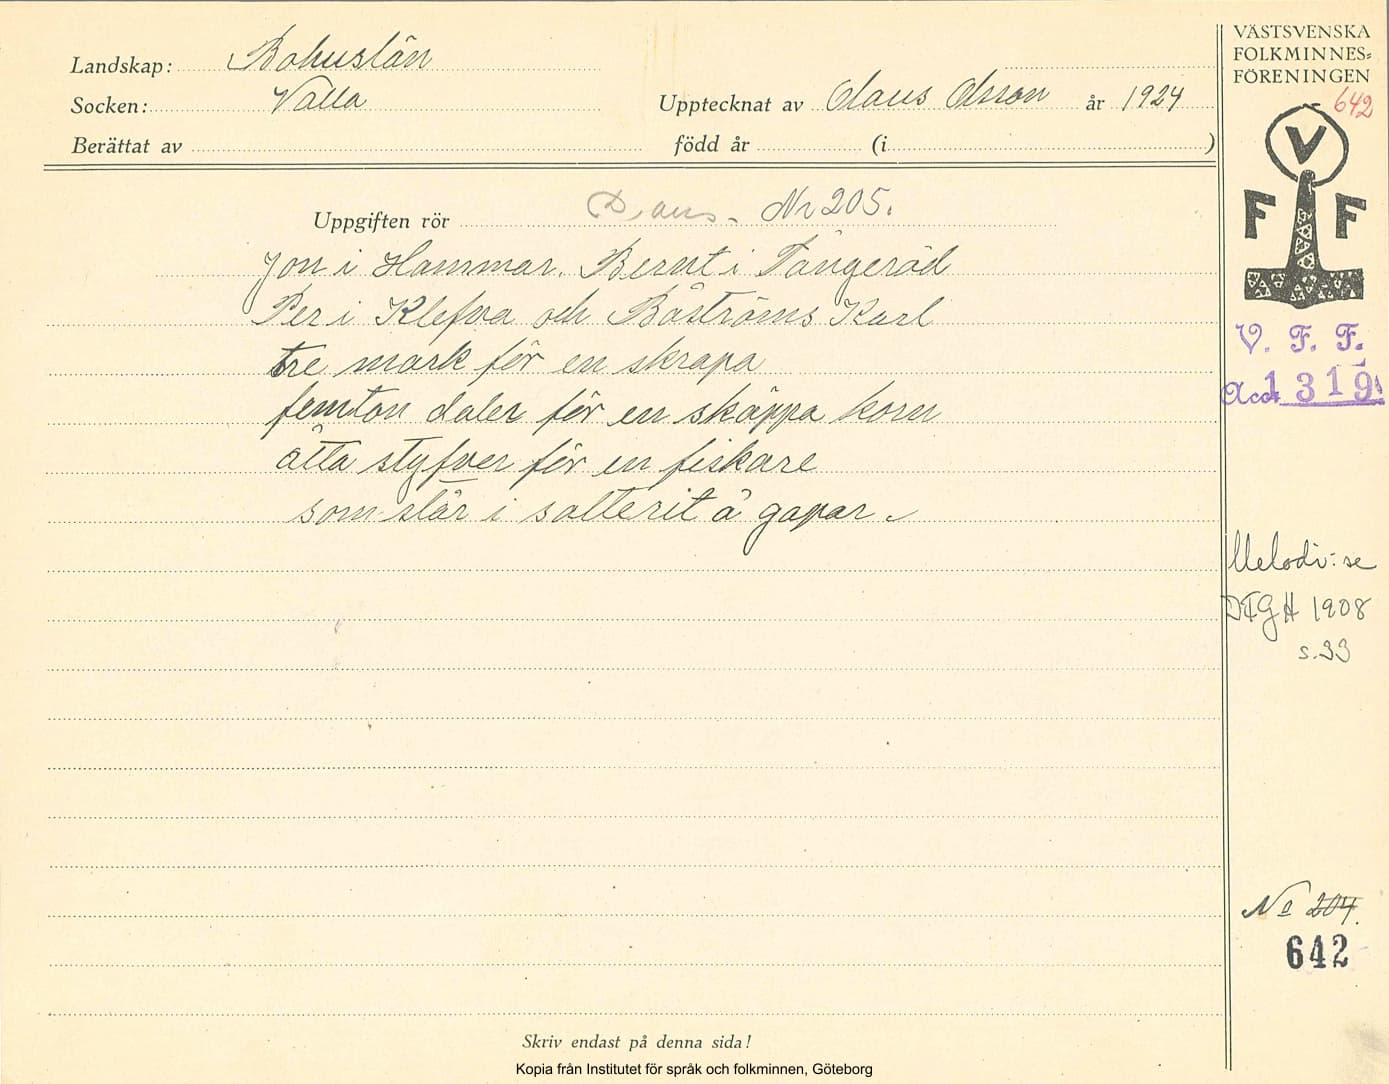 Landskap: Bohuslän
Socken: Valla
Upptecknat av Olaus Olsson år 1924
Berättat av född år (i )
VÄSTSVENSKA
FOLKMINNES=
FÖRENINGEN
642
V
F F
V. F. F.
Acc. 1319
Uppgiften rör Dans. Nr 205.
Jon i Hammar. Bernt i Tångeröd
Per i Klefva och Båströms Karl
tre mark för en skrapa
femton daler för en skäppa korn
åtta styfver för en fiskare
som står i salterit å gapar.
Melodi: se
DFGH 1908
s. 33
No 204.
642
Skriv endast på denna sida!
Kopia från Institutet för språk och folkminnen, Göteborg